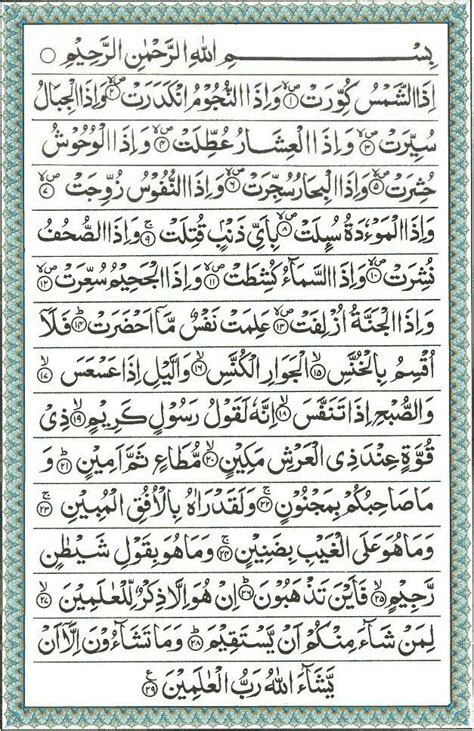 بِسْمِ اللهِ الرَّحْمٰنِ الرَّحِيْمِ ○
اِذَا الشَّمْسُ كُوِّرَتْ ۪ۙ﴿۱﴾ وَاِذَا النُّجُوْمُ انْكَدَرَتْ ۪ۙ﴿۲﴾ وَاِذَا الْجِبَالُ
سُيِّرَتْ ۪ۙ﴿۳﴾ وَاِذَا الْعِشَارُ عُطِّلَتْ ۪ۙ﴿۴﴾ وَاِذَا الْوُحُوْشُ
حُشِرَتْ ۪ۙ﴿۵﴾ وَاِذَا الْبِحَارُ سُجِّرَتْ ۪ۙ﴿۶﴾ وَاِذَا النُّفُوْسُ زُوِّجَتْ ۪ۙ﴿۷﴾
وَاِذَا الْمَوْءٗدَةُ سُىِٕلَتْ ۪ۙ﴿۸﴾ بِاَىِّ ذَنْۢبٍ قُتِلَتْ ۚ﴿۹﴾ وَاِذَا الصُّحُفُ
نُشِرَتْ ۪ۙ﴿۱۰﴾ وَاِذَا السَّمَآءُ كُشِطَتْ ۪ۙ﴿۱۱﴾ وَاِذَا الْجَحِيْمُ سُعِّرَتْ ۪ۙ﴿۱۲﴾
وَاِذَا الْجَنَّةُ اُزْلِفَتْ ۪ۙ﴿۱۳﴾ عَلِمَتْ نَفْسٌ مَّاۤ اَحْضَرَتْ ؕ﴿۱۴﴾ فَلَاۤ
اُقْسِمُ بِالْخُنَّسِ ۙ﴿۱۵﴾ الْجَوَارِ الْكُنَّسِ ۙ﴿۱۶﴾ وَالَّيْلِ اِذَا عَسْعَسَ ۙ﴿۱۷﴾
وَالصُّبْحِ اِذَا تَنَفَّسَ ۙ﴿۱۸﴾ اِنَّهٗ لَقَوْلُ رَسُوْلٍ كَرِيْمٍ ۙ﴿۱۹﴾ ذِىْ
قُوَّةٍ عِنْدَ ذِى الْعَرْشِ مَكِيْنٍ ۙ﴿۲۰﴾ مُّطَاعٍ ثَمَّ اَمِيْنٍ ؕ﴿۲۱﴾ وَ
مَا صَاحِبُكُمْ بِمَجْنُوْنٍ ۚ﴿۲۲﴾ وَلَقَدْ رَاٰهُ بِالْاُفُقِ الْمُبِيْنِ ۚ﴿۲۳﴾
وَمَا هُوَ عَلَى الْغَيْبِ بِضَنِيْنٍ ۚ﴿۲۴﴾ وَمَا هُوَ بِقَوْلِ شَيْطٰنٍ
رَّجِيْمٍ ۙ﴿۲۵﴾ فَاَيْنَ تَذْهَبُوْنَ ؕ﴿۲۶﴾ اِنْ هُوَ اِلَّا ذِكْرٌ لِّلْعٰلَمِيْنَ ۙ﴿۲۷﴾
لِمَنْ شَآءَ مِنْكُمْ اَنْ يَّسْتَقِيْمَ ؕ﴿۲۸﴾ وَمَا تَشَآءُوْنَ اِلَّاۤ اَنْ
يَّشَآءَ اللهُ رَبُّ الْعٰلَمِيْنَ ﴿۲۹﴾ ع